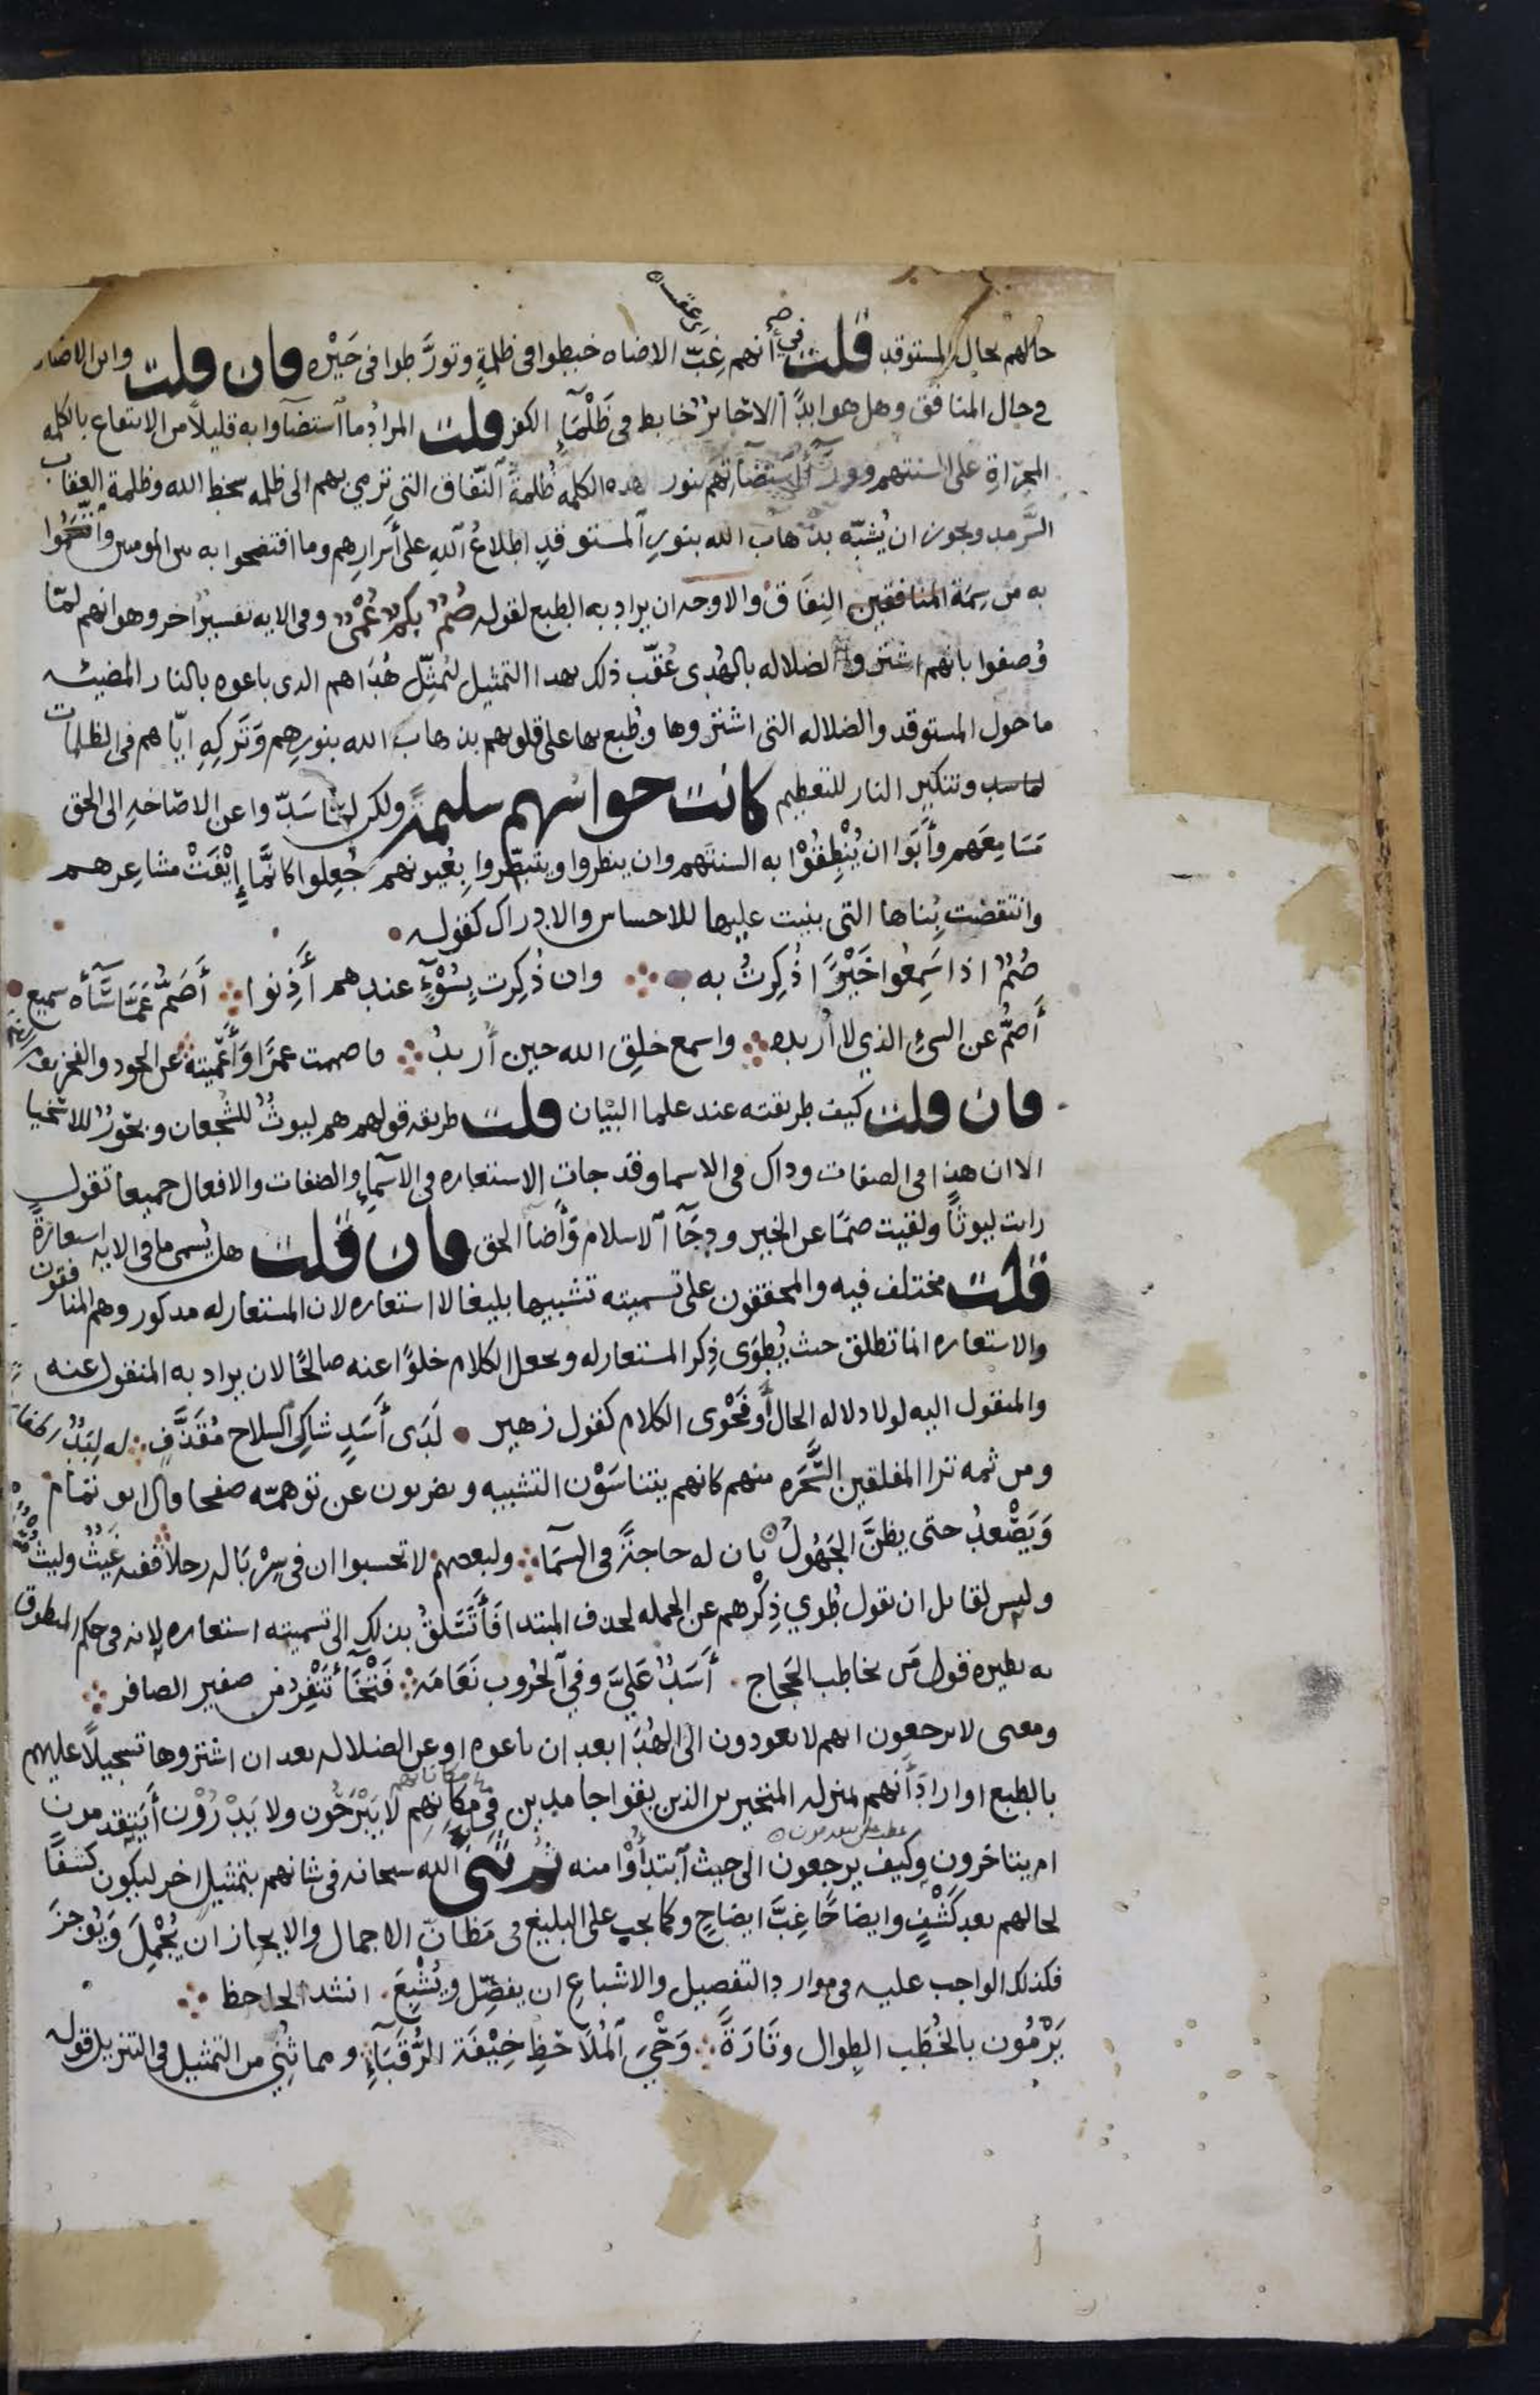 حالهم بحال المستوقد قلت في أنهم غِبَّ الاضاه خبطوا فى ظلمةٍ وتورَّطوا فى حَيْره فان قلت واىن الاضاه
فى حال المنافق وهل هو ابدًا الا حائرٌ خابط فى ظَلْمَآءِ الكفر قلت المرادُ ما استضآوا به قليلاً من الانتفاع بالكلمه
المجراةِ على السنتهم وورآء استضآتهم بنور هده الكلمه ظُلمةُ النّفاق التى ترمي بهم الى ظلمه سخط الله وظلمة العقاب
السَّرمد ويجوز ان يُشبّه بذهاب الله بنورِ المستوقدِ اطلاعُ اللهِ على أَسرارِهم وما افتضحوا به بىن المومىىن واتّسَمُوا
به من سِمَة المنافقين النِفَاق والاوجه ان يراد به الطبع لقوله صُمٌّ بكمٌ عُمْىٌ وفى الايه تفسيرٌ اخر وهو انهم لمّا
وُصفوا بانهم اشتروا الضلاله بالهُدى عُقّب ذلك بهدا التمثيل ليُمثِّل هُدَاهم الدى باعوه بالنار المضيئه
ما حول المستوقد والضلاله التى اشتروها وطُبع بها على قلوبهم بذهاب الله بنورهِم وَتَركِهِ ايّاهم فى الظلمات
وتنكير النار للتعظيم كانت حواسُهم سليمةً ولكن لمّا سَدّوا عن الاصَاخهِ الى الحق
مَسَامِعَهم وأَبَوْا ان يُنْطِقُوْا به السنتَهم وان ينظروا ويتبصّروا بِعُيونهم جُعِلوا كانَّمَا إِيْفَتْ مشاعِرهم
وانتقضت بُناها التى بنيت عليها للاحساس والادراك كقوله
صُمٌّ اذا سَمِعُوا خَيْرًا ذُكِرتُ به وان ذُكِرت بِسُوْءٍ عندهم أَذِنوا أَصَمُّ عَمَّا سَآءَه سميع
أَصَمُّ عن الشئ الذي لا أُريده واسمع خلقِ الله حين أُريدُ فاصممت عمرًا وَأَعْميته عن الجود والفخر يوم الفخار
فان قلت كيف طريقته عند علما البيَان قلت طريقه قولهم هم ليوثٌ للشجعان وبحورٌ للاسخيا
الا ان هذا فى الصفات وداك فى الاسما وقد جات الاستعاره فى الاسمآءِ والصفات والافعال جميعا تقول
رات ليوثًا ولقيت صمًّا عن الخير ودجَا الاسلام وَأَضآ الحق فان قلت هل يُسمى ما فى الايه استعارةً
قلت مختلف فيه والمحققون على تسميته تشبيها بليغا لا استعاره لان المستعار له مدكور وهم المنافقون
والاستعاره انما تطلق حىث يُطوَى ذِكر المستعار له وىجعل الكلام خلوًا عنه صالحًا لان يراد به المنقول عنه
والمنقول اليه لولا دلاله الحال أَو فَحْوى الكلام كقول زهير لَدَى أَسَدٍ شاكِى السلاح مُقَذَّفٍ له لِبَدٌ
ومن ثمه ترا المفلقين السَّحَره منهم كانهم يتناسَوْن التشبيه ويضربون عن توهّمه صفحا قال ابو تمام
وَيَصْعدُ حتى يظنَّ الجَهُولُ بان له حاجةً فى السمَآ ولبعضهم لا تحسبوا ان فى سِرْبَاله رحلاً ففيه غَيْثٌ وليثٌ
وليس لقائل ان يقول طُوي ذِكْرهم عن الجمله لحذف المبتدا فَأَتَسَلقُ بذلك الى تسميته استعاره لانه فى حكم المنطوق
به نظيره قول مَن يخاطب الحَجاج أَسَدٌ عَلَيَّ وفي الحُروب نَعَامَة فَتْخَآءُ تَنْفِرُ من صفير الصافر
ومعنى لا يرجعون انهم لا يعودون الى الهُدَا بعد ان باعوه او عن الضلاله بعد ان اشتروها تسجيلًا عليهم
بالطبع او ارادَ أَنهم بمنزله المتحيرىن الذىن بقوا جامدِين فِى مكانِهِم لا يَبْرَحُون ولا يَدْرُوْن أَيتقدمون
ام يتاخرون وكيف يرجعون الى حيث ابتدأُوْا منه ثُمَّ ثَنَّى الله سبحانه فى شانهم بتمثيل اخر ليكون كشفًا
لحالهم بعد كَشْفٍ وايضاحًا غِبَّ ايضاحٍ وكما يجب على البليغ فى مَظانّ الاجمال والايجاز ان يُجْمِلَ وَيُوجزَ
فكذلك الواجب عليه فى موارد التفصيل والاشباعِ ان يفصّل ويُشْبِعَ انشد الجاحظ
يَرْمُون بالخُطَب الطِوال وتَارَةً وَحْيَ المُلَاحَظِ خِيْفَةَ الرُّقَبَآءِ ومما ثُنِي من التمثيل فى التنزيل قوله